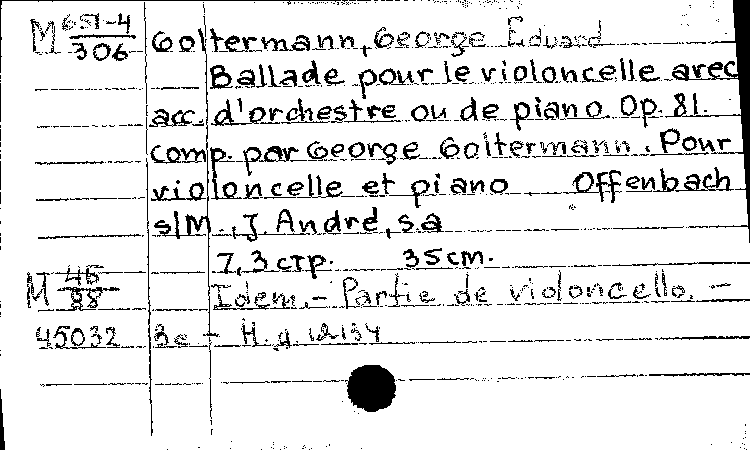 M 651-4/306 Goltermann, George Eduard
Ballade pour le violoncelle avec
acc. d'orchestre ou de piano. Op. 81.
comp. par George Goltermann. Pour
violoncelle et piano Offenbach
s/M., J. André, s.a
7, 3 стр. 35 cm.
M 46/88 Idem. - Partie de violoncello. -
45032